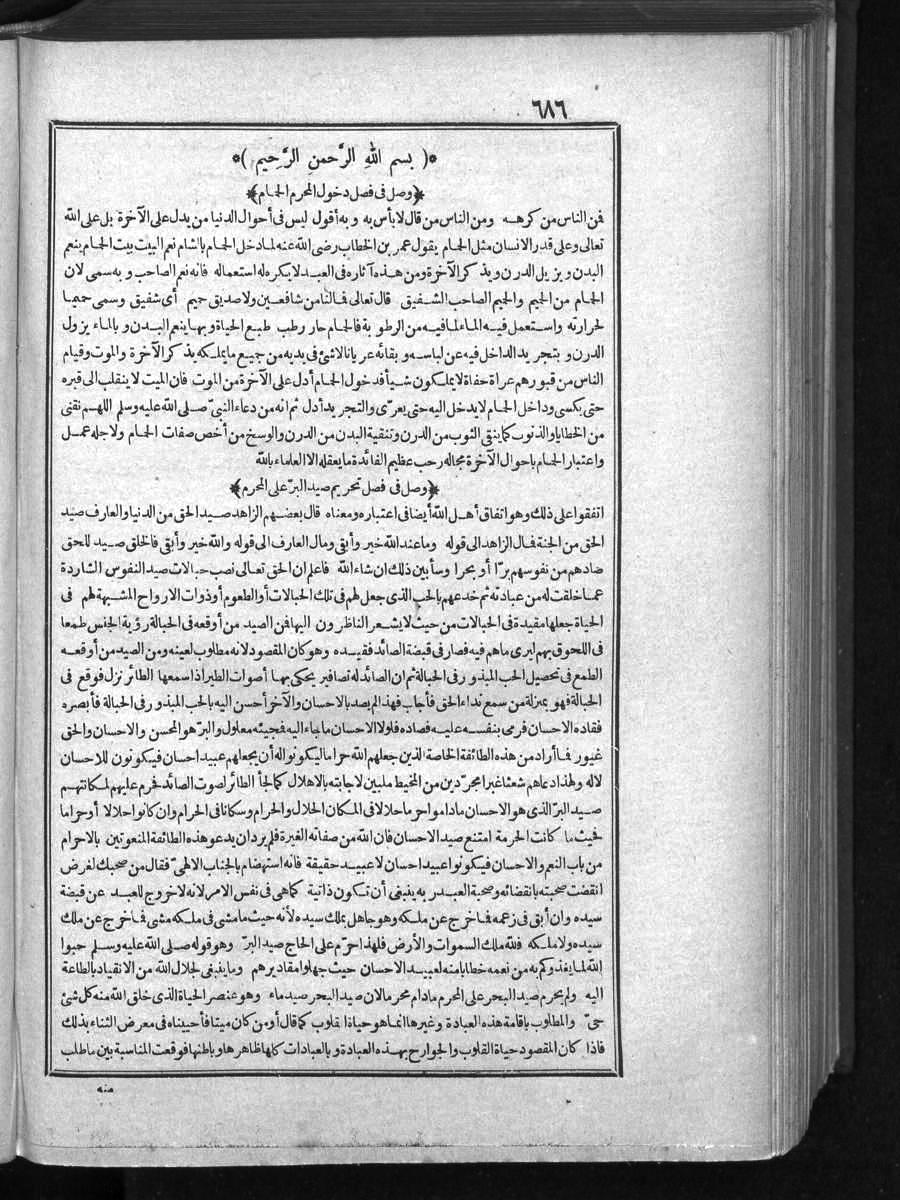 ٦٨٦
*( بسم الله الرَّحمن الرَّحيم )*
﴿وصل فى فصل دخول المحرم الحمام﴾
فمن الناس من كرهه ومن الناس من قال لا بأس به وبه أقول ليس فى أحوال الدنيا من يدل على الآخرة بل على الله
تعالى وعلى قدر الانسان مثل الحمام يقول عمر بن الخطاب رضى الله عنه لما دخل الحمام بالشام نعم البيت بيت الحمام ينعم
البدن ويزيل الدرن ويذكر الآخرة ومن هذه آثاره فى العبد لا يكره له استعماله فانه نعم الصاحب وبه سمى لان
الحمام من الحميم والحميم الصاحب الشفيق قال تعالى فما لنا من شافعين ولا صديق حميم أى شفيق وسمى حميما
لحرارته واستعمل فيه الماء لما فيه من الرطوبة فالحمام حار رطب طبع الحياة وبها ينعم البدن وبالماء يزول
الدرن وبتجريد الداخل فيه عن لباسه وبقائه عريانا لا شئ فى يديه من جميع ما يملكه يذكر الآخرة والموت وقيام
الناس من قبورهم عراة حفاة لا يملكون شيأ فدخول الحمام أدل على الآخرة من الموت فان الميت لا ينقلب الى قبره
حتى يكسى وداخل الحمام لا يدخل اليه حتى يعرّى والتجريد أدل ثم انه من دعاء النبىّ صلى الله عليه وسلم اللهم نقنى
من الخطايا والذنوب كما ينقى الثوب من الدرن وتنقية البدن من الدرن والوسخ من أخص صفات الحمام ولاجله عمل
واعتبار الحمام باحوال الآخرة مجاله رحب عظيم الفائدة ما يعقله الا العلماء بالله
﴿وصل فى فصل تحريم صيد البرّ على المحرم﴾
اتفقوا على ذلك وهو اتفاق أهل الله أيضا فى اعتباره ومعناه قال بعضهم الزاهد صيد الحق من الدنيا والعارف صيد
الحق من الجنة فمال الزاهد الى قوله وما عند الله خير وأبقى ومال العارف الى قوله والله خير وأبقى فالخلق صيد للحق
صادهم من نفوسهم برّا أو بحرا وسأبين ذلك ان شاء الله فاعلم ان الحق تعالى نصب حبالات صيد النفوس الشاردة
عما خلقت له من عبادته ثم خدعهم بالحب الذى جعل لهم فى تلك الحبالات أو الطعوم أو ذوات الارواح المشبهة لهم فى
الحياة جعلها مقيدة فى الحبالات من حيث لا يشعر الناظرون اليها فمن الصيد من أوقعه فى الحبالة رؤية الجنس طمعا
فى اللحوق بهم ليرى ما هم فيه فصار فى قبضة الصائد فقيده وهو كان المقصود لانه مطلوب لعينه ومن الصيد من أوقعه
الطمع فى تحصيل الحب المبذور فى الحبالة ثم ان الصائد له تصافير يحكى بها أصوات الطير اذا سمعها الطائر نزل فوقع فى
الحبالة فهو بمنزلة من سمع نداء الحق فأجاب فهذا لم يصد بالاحسان والآخر أحسن اليه بالحب المبذور فى الحبالة فأبصره
فقاده الاحسان فرمى بنفسه عليه فصاده فلولا الاحسان ما جاء اليه فمجيئه معلول والبرّ هو المحسن والاحسان والحق
غيور فما أراد من هذه الطائفة الخاصة الذين جعلهم الله حراما ليكونوا له أن يجعلهم عبيد احسان فيكونون للاحسان
لا له ولهذا دعاهم شعثا غبرا مجرّدين من المخيط ملبين لاجابته بالاهلال كما لجأ الطائر لصوت الصائد فحرم عليهم لمكانتهم
صيد البرّ الذى هو الاحسان ماداموا حرما حلالا فى المكان الحلال والحرام وسكانا فى الحرام وان كانوا حلالا أو حراما
فحيث ما كانت الحرمة امتنع صيد الاحسان فان الله من صفاته الغيرة فلم يرد ان يدعو هذه الطائفة المنعوتين بالاحرام
من باب النعم والاحسان فيكونوا عبيد احسان لا عبيد حقيقة فانه استهضام بالجناب الالهىّ فقال من صحبك لغرض
انقضت صحبته بانقضائه وصحبة العبد ربه ينبغى أن تكون ذاتية كما هى فى نفس الامر لانه لا خروج للعبد عن قبضة
سيده وان أبق فى زعمه فما خرج عن ملكه وهو جاهل بملك سيده لأنه حيث ما مشى فى ملكه مشى فما خرج عن ملك
سيده ولا ملكه فلله ملك السموات والأرض فلهذا حرّم على الحاج صيد البرّ وهو قوله صلى الله عليه وسلم حبوا
الله لما يغذوكم به من نعمه خطابا منه لعبيد الاحسان حيث جهلوا مقاديرهم وما ينبغى لجلال الله من الانقياد بالطاعة
اليه ولم يحرم صيد البحر على المحرم مادام محرما لان صيد البحر صيد ماء وهو عنصر الحياة الذى خلق الله منه كل شئ
حىّ والمطلوب باقامة هذه العبادة وغيرها انما هو حياة القلوب كما قال أو من كان ميتا فأحييناه فى معرض الثناء بذلك
فاذا كان المقصود حياة القلوب والجوارح بهذه العبادة وبالعبادات كلها ظاهرها وباطنها فوقعت المناسبة بين ما طلب
منه